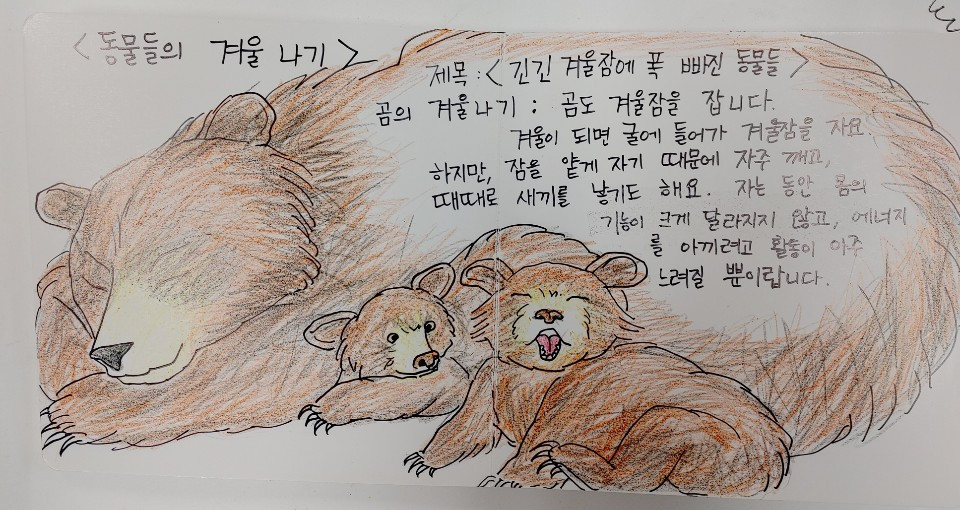 <동물들의 겨울 나기>
제목 : <긴긴 겨울잠에 푹 빠진 동물들>
곰의 겨울나기 : 곰도 겨울잠을 잡니다.
겨울이 되면 굴에 들어가 겨울잠을 자요.
하지만, 잠을 얕게 자기 때문에 자주 깨고,
때때로 새끼를 낳기도 해요. 자는 동안 몸의
기능이 크게 달라지지 않고, 에너지
를 아끼려고 활동이 아주
느려질 뿐이랍니다.